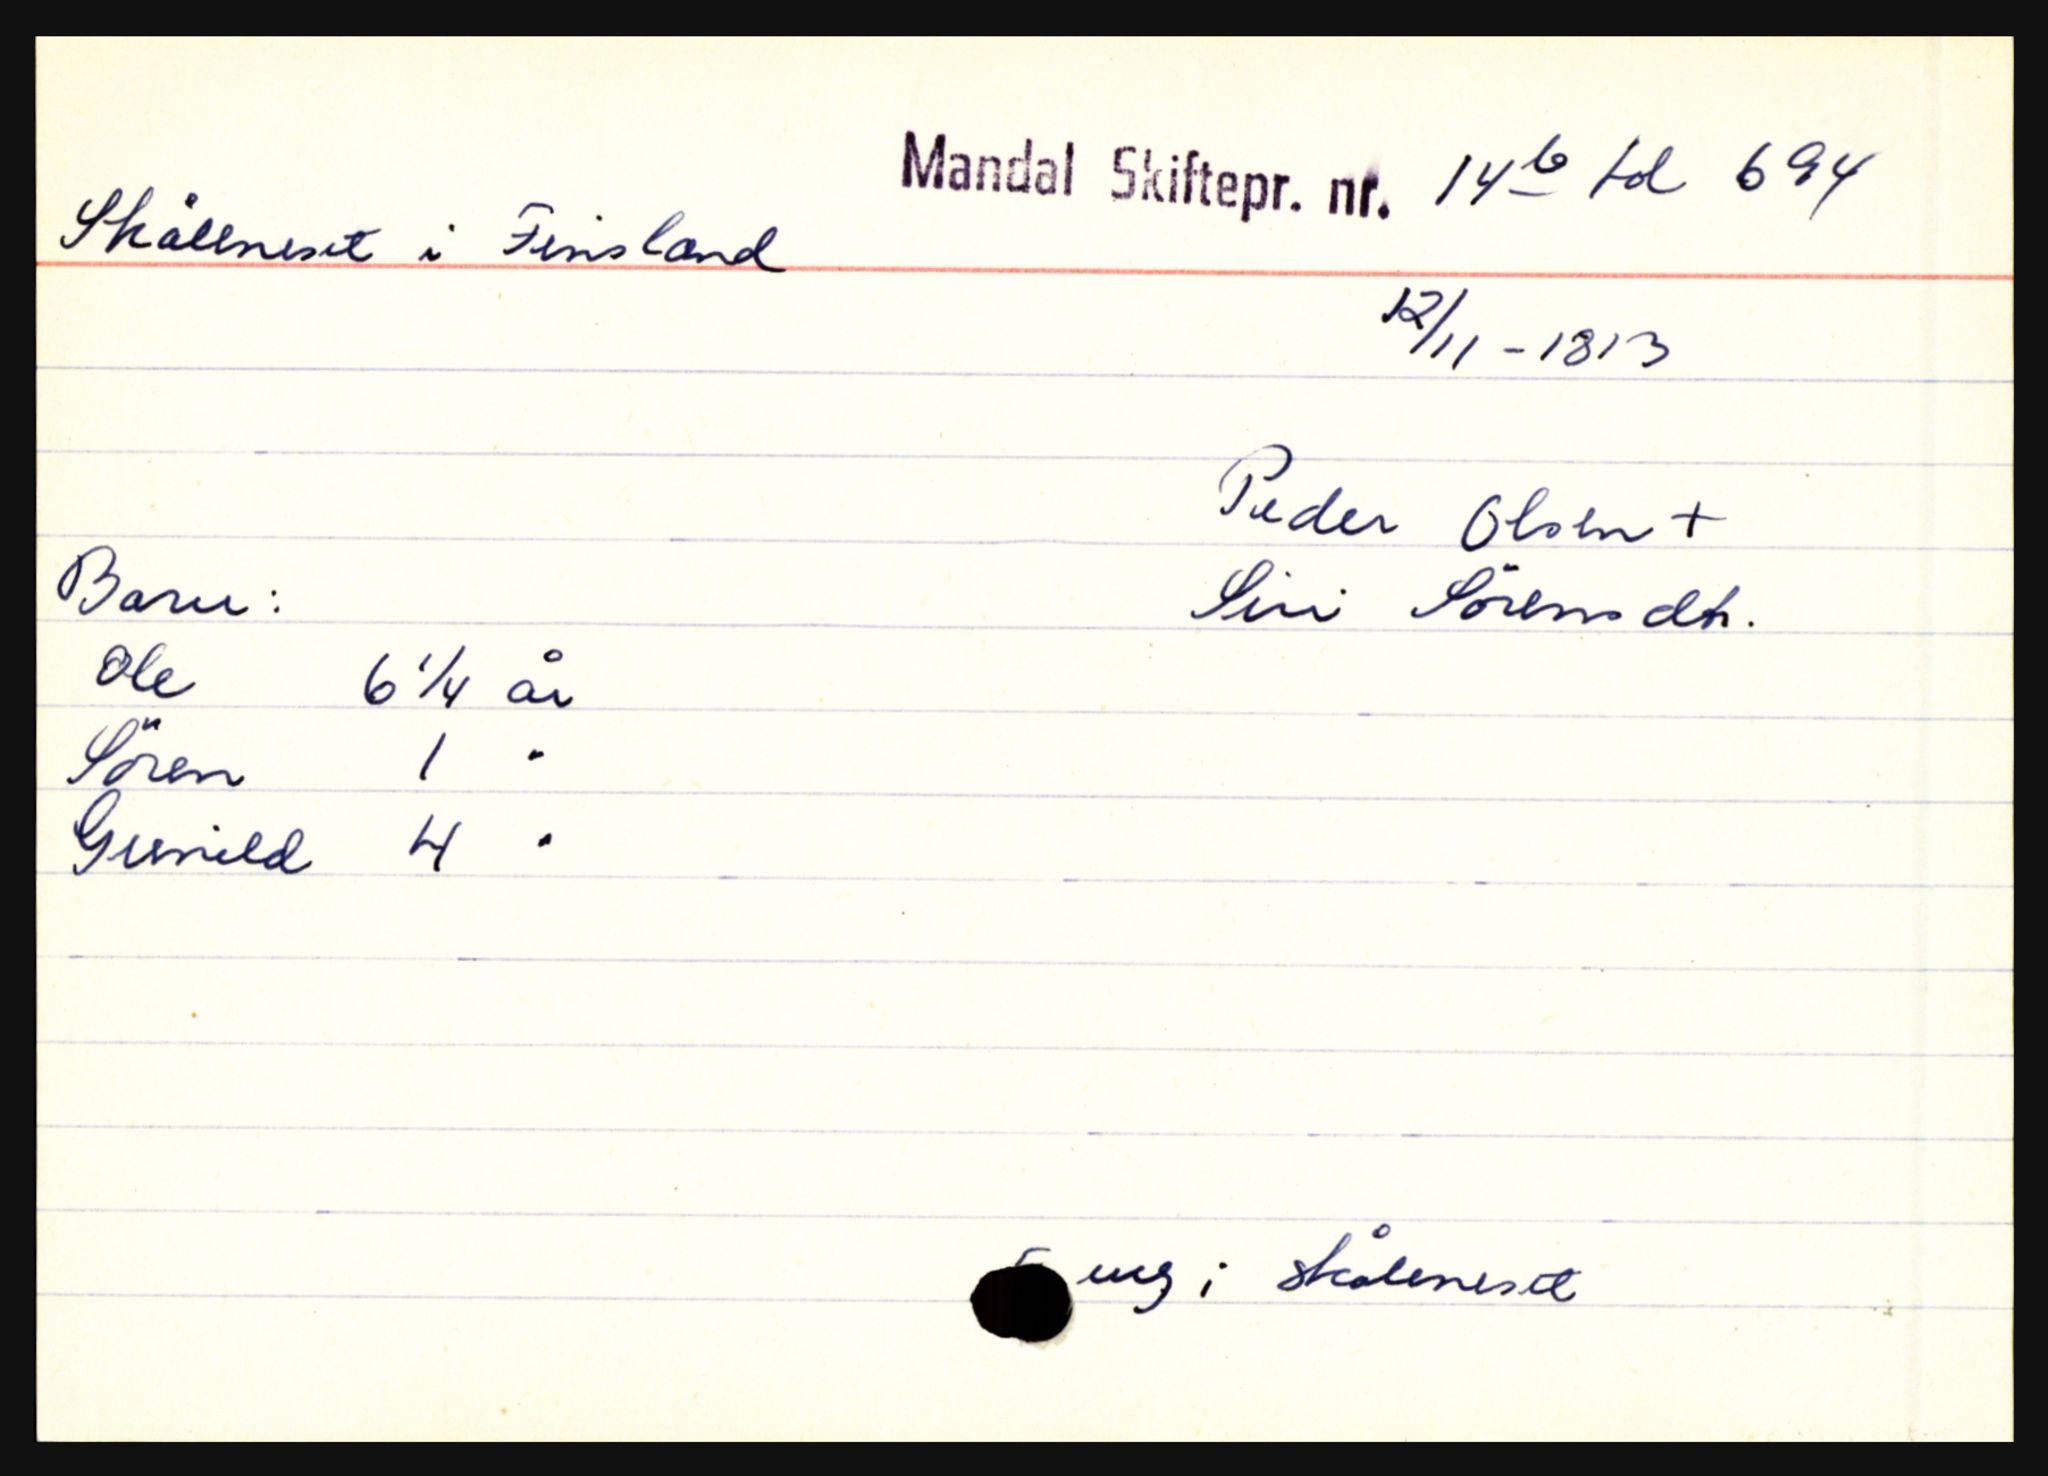 Mandal Skiftepr. nr. 14b fol 694
Skålleneset i Finsland
12/11 - 1813
Peder Olsen +
Barn:
Siri Sörensdtr.
Ole 6 1/4 år
Sören 1 "
Gunild 4 "
i Skåleneset